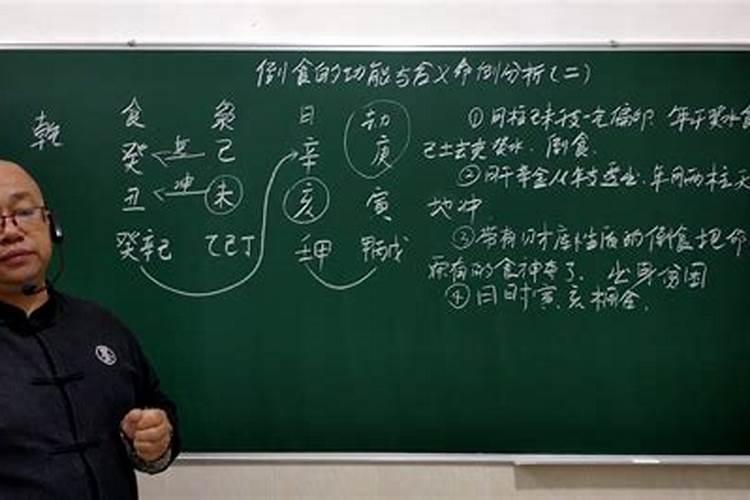 倒食的功能与含义命例分析(二)
乾 食 枭 日 劫
癸 克 己 辛 庚
丑 冲 未 亥 寅
癸辛己 乙己丁 壬甲 甲丙戊
①月柱己未干支一气偏印 年干癸水食
己土去克癸水 倒食
②日干辛金从年支透出 年月两柱天
地冲
③带有 才库性质的倒食把命
原有的食神夺了 出身贫困
④日时寅亥相合